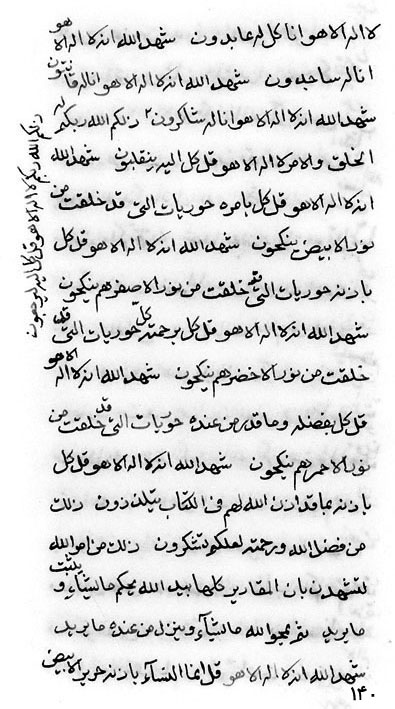 لا اله الا هو انا كل له عابدون شهد الله انه لا اله الا هو
انا له ساجدون شهد الله انه لا اله الا هو انا له قانتون
شهد الله انه لا اله الا هو انا له شاكرون ذلكم الله ربكم له
الخلق والامر لا اله الا هو قل كل اليه ينقلبون شهد الله
انه لا اله الا هو قل كل بامره حوريات التي قد خلقت من
نور الابيض ينكحون شهد الله انه لا اله الا هو قل كل
باذنه حوريات التي قد خلقت من نور الاصفر هم ينكحون
شهد الله انه لا اله الا هو قل كل برحمته كل حوريات التي قد
خلقت من نور الاخضر هم ينكحون شهد الله انه لا اله الا هو
قل كل بفضله وما قدر من عنده حوريات التي قد خلقت من
نور الاحمر هم ينكحون شهد الله انه لا اله الا هو قل كل
باذنه بما قد اذن الله لهم في الكتاب يتلذذون ذلك
من فضل الله ورحمته لعلكم تشكرون ذلك من امر الله
لتشهدن بان المقادير كلها بيد الله يحكم ما يشاء ويثبت
ما يريد ثم يمحو الله ما يشآء وينزل من عنده ما يريد
شهد الله انه لا اله الا هو قل انما النسآء باذنه حرير الابيض
ذلكم الله ربكم لا اله الا هو قل كل اليه ليرجعون
١٤٠